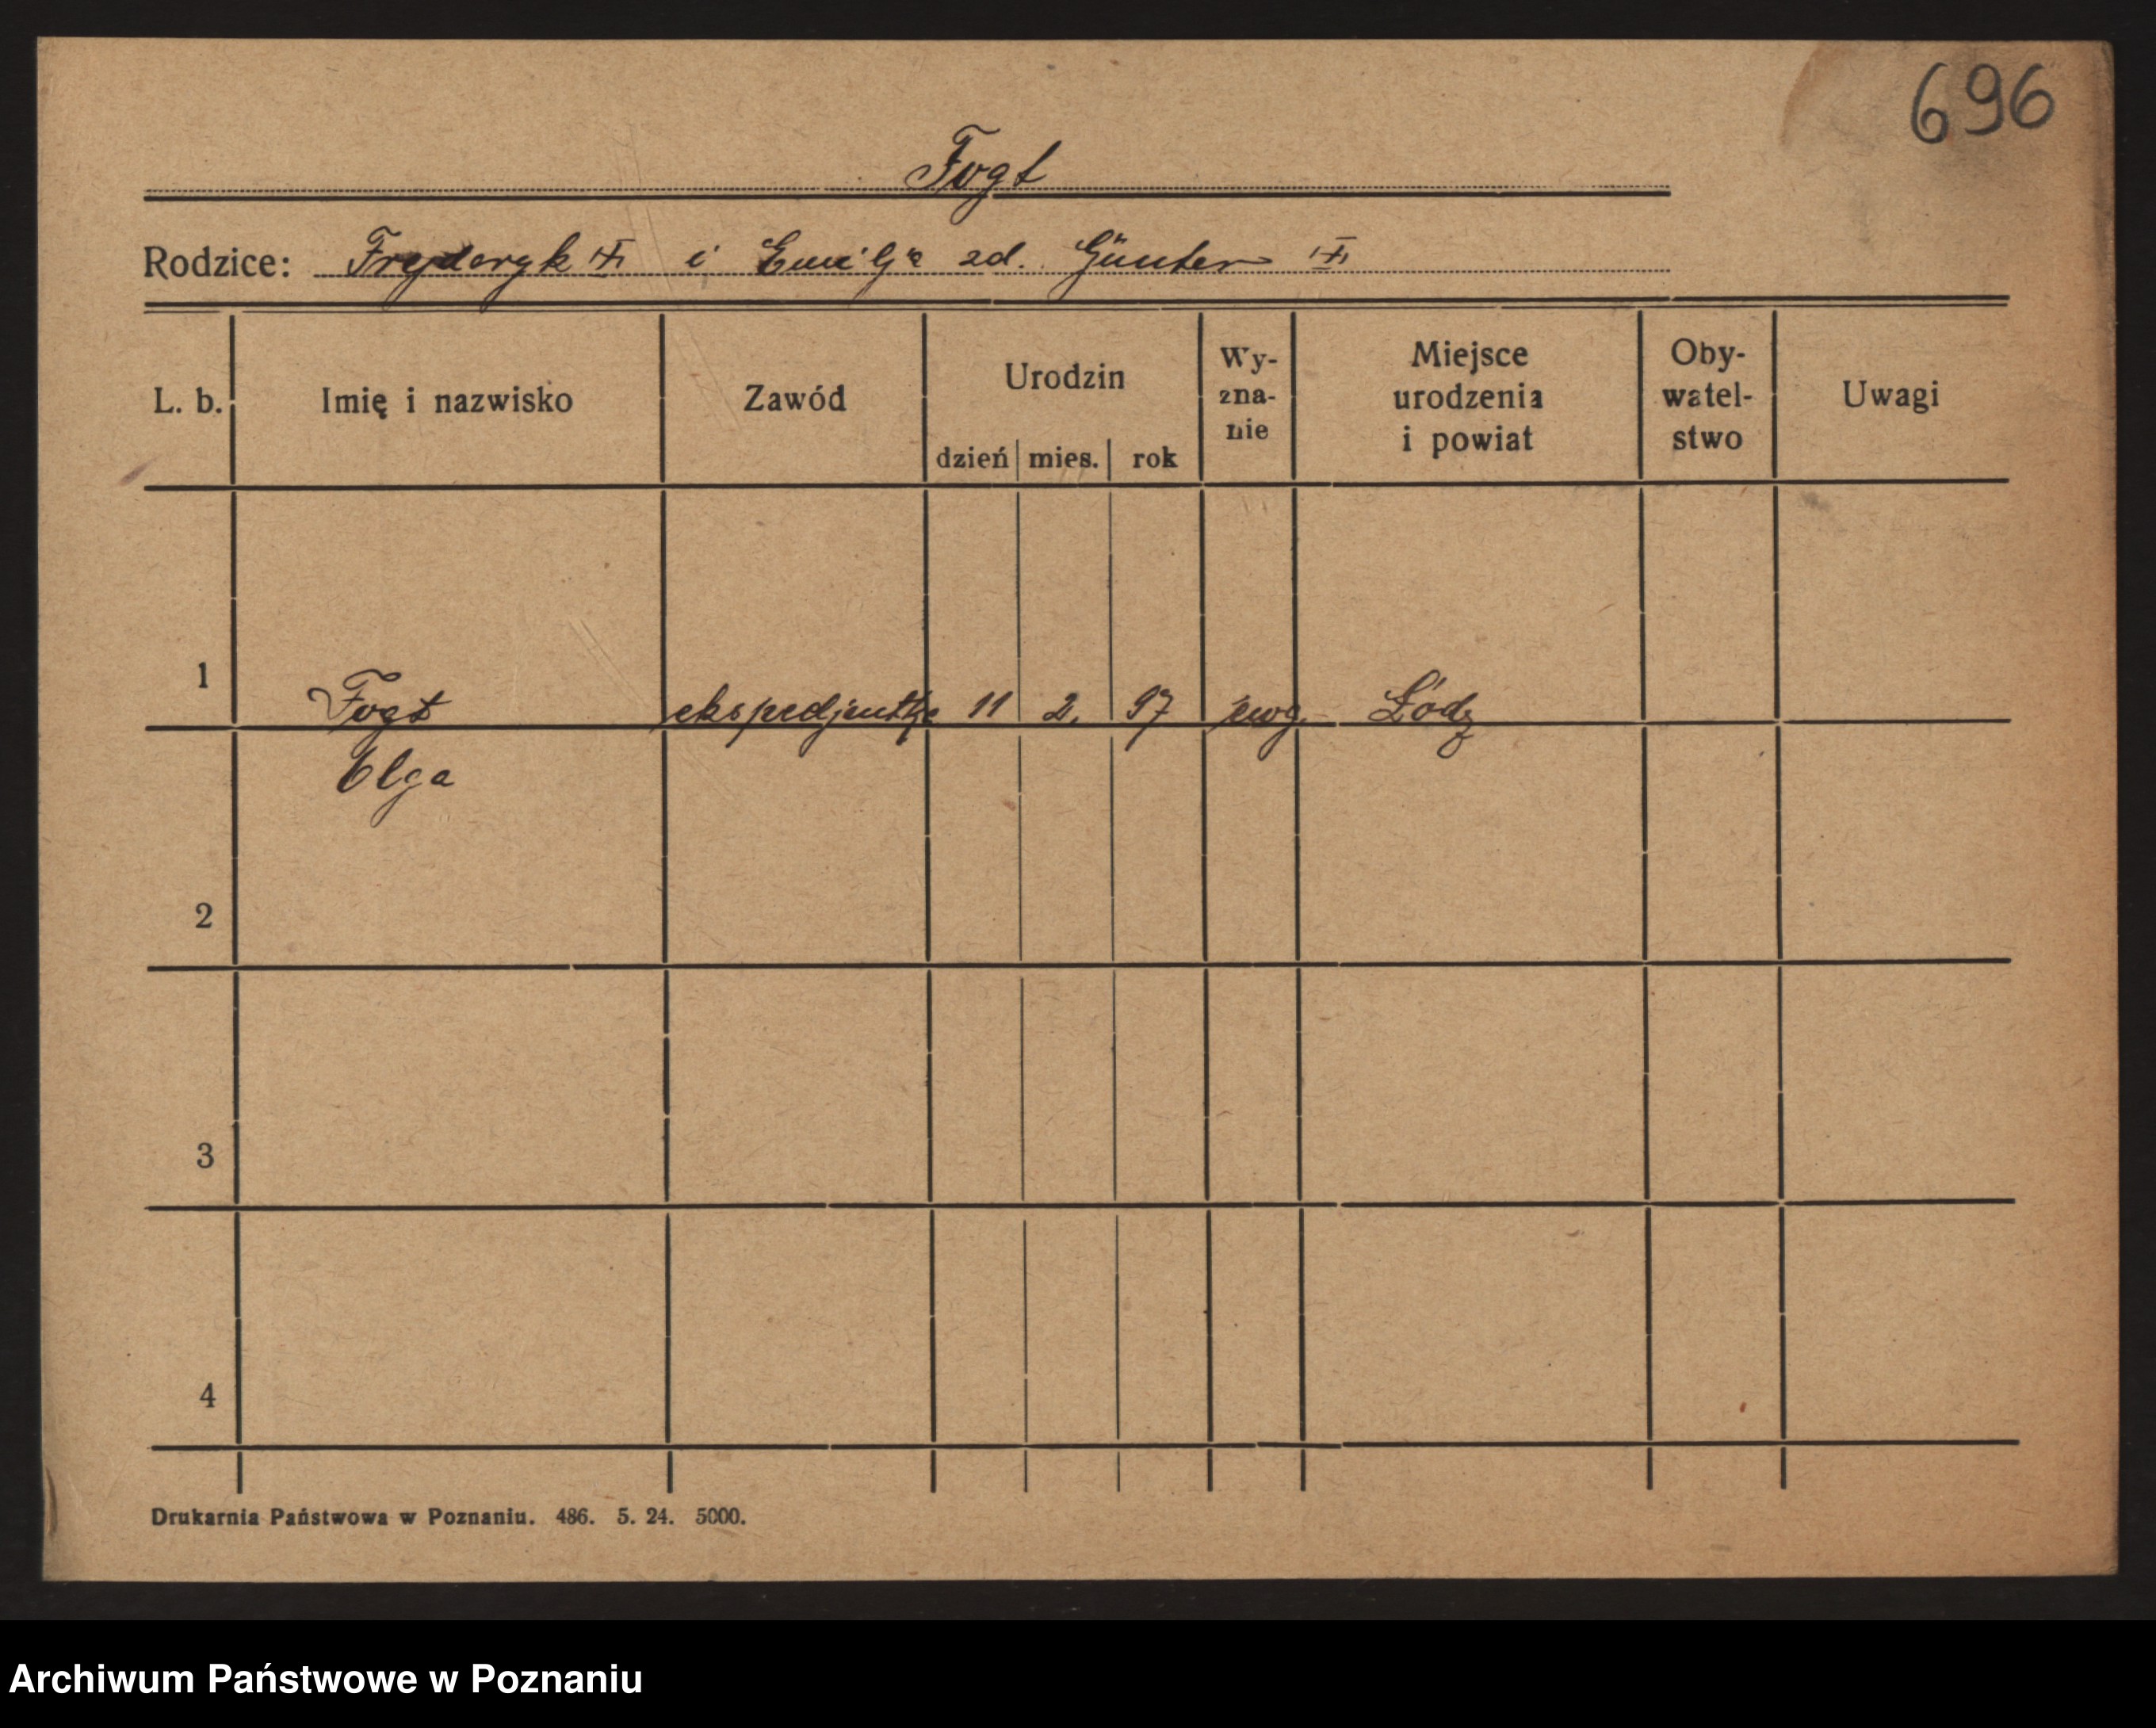 696
Fogt
Rodzice: Fryderyk i Emilja zd. Günter
L. b. Imię i nazwisko Zawód Urodzin dzień mies. rok Wy-zna-nie Miejsce urodzenia i powiat Oby-watel-stwo Uwagi
1 Fogt ekspedjentka 11 2. 97 ewg. Łódź
Olga
2
3
4
Drukarnia Państwowa w Poznaniu. 486. 5. 24. 5000.
Archiwum Państwowe w Poznaniu